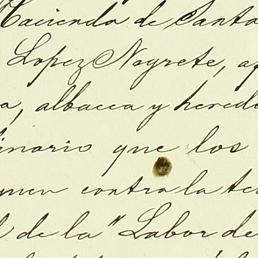 Hacienda de Santa
Lopez Negrete, ap
a, albacea y herede
inario que los
men contra la te
l de la "Labor de